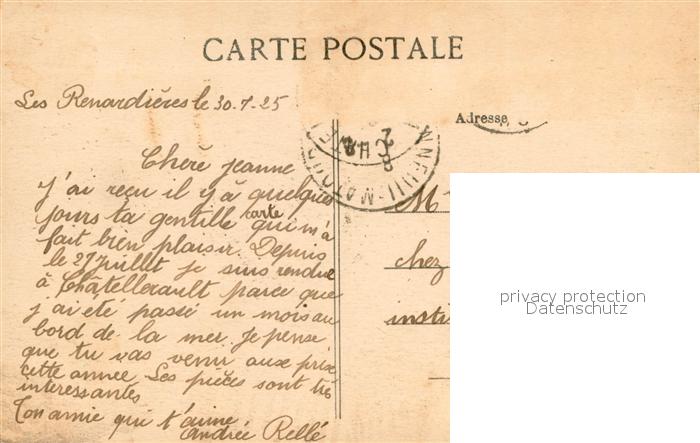 CARTE POSTALE
Les Renardières le 30-7-25
Adresse
Chère Jeanne
J'ai reçu il y a quelques
jours ta gentille carte qui m'a
fait bien plaisir. Depuis
le 27 Juillet je suis rendue
à Châtellerault parce que
j'ai été passé un mois au
bord de la mer. Je pense
que tu vas venir aux prix
cette année. Les pièces sont très
interessantes
Ton amie qui t'aime
Andrée Rellé
NNEUIL-MATOUR
M
chez
insti
privacy protection
Datenschutz